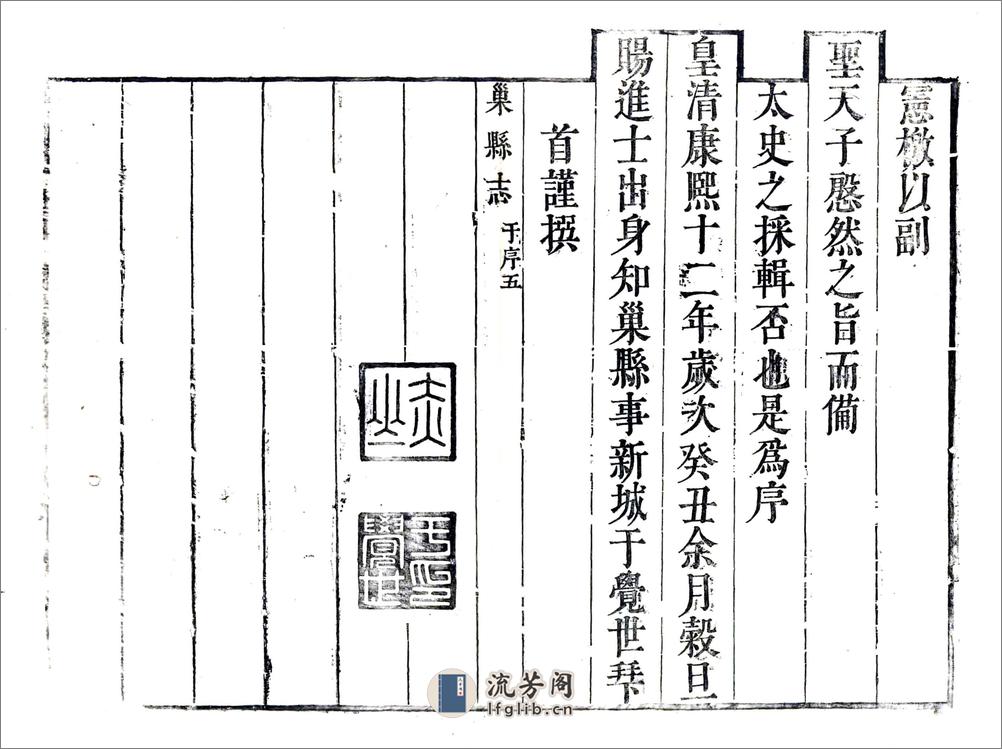 憲檄以副
聖天子慇然之旨而備
太史之採輯否也是爲序
皇清康熙十二年歲次癸丑余月穀旦
賜進士出身知巢縣事新城于覺世
首謹撰
巢縣志 于序五
于印覺世
流芳阁
lfglib.cn